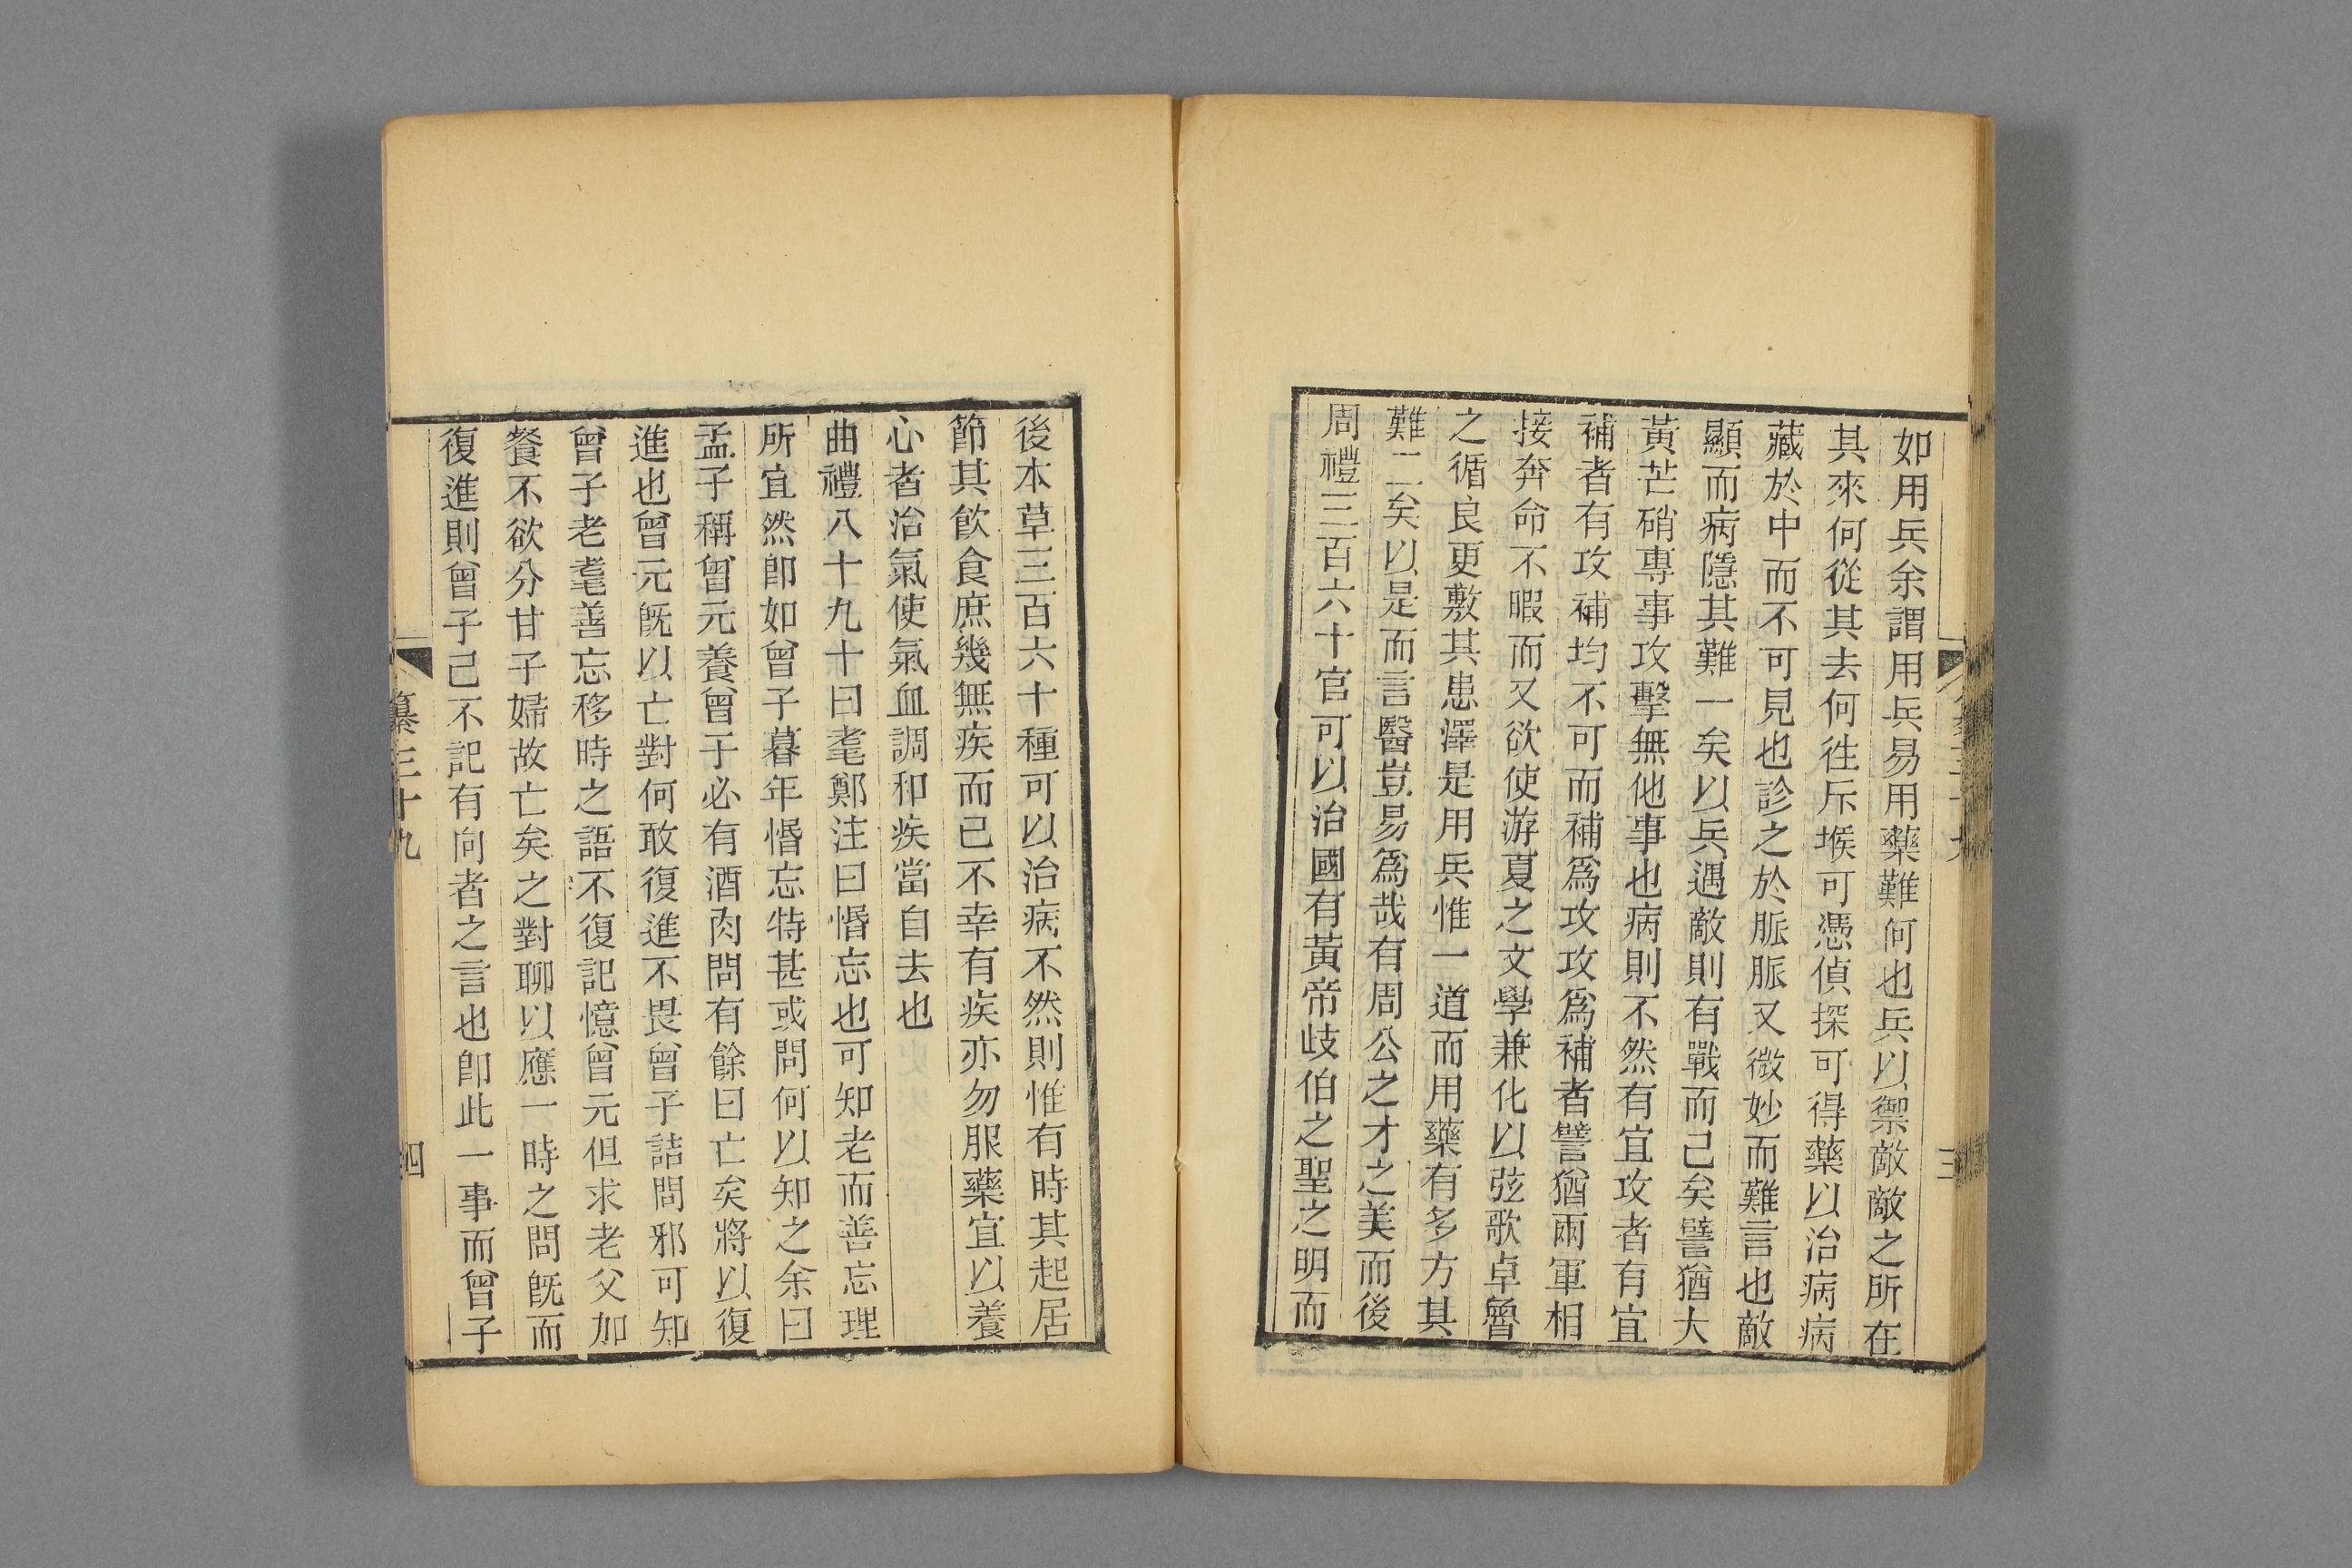 如用兵余謂用兵易用藥難何也兵以禦敵敵之所在
其來何從其去何徃斥堠可憑偵探可得藥以治病病
藏於中而不可見也診之於脈脈又微妙而難言也敵
顯而病隱其難一矣以兵遇敵則有戰而已矣譬猶大
黃芒硝專事攻擊無他事也病則不然有宜攻者有宜
補者有攻補均不可而補爲攻攻爲補者譬猶兩軍相
接奔命不暇而又欲使游夏之文學兼化以弦歌卓魯
之循良更敷其患澤是用兵惟一道而用藥有多方其
難二矣以是而言醫豈易爲哉有周公之才之美而後
周禮三百六十官可以治國有黃帝歧伯之聖之明而
後本草三百六十種可以治病不然則惟有時其起居
節其飮食庶幾無疾而已不幸有疾亦勿服藥宜以養
心者治氣使氣血調和疾當自去也
曲禮八十九十曰耄鄭注曰惽忘也可知老而善忘理
所宜然卽如曾子暮年惽忘特甚或問何以知之余曰
孟子稱曾元養曾子必有酒肉問有餘曰亡矣將以復
進也曾元旣以亡對何敢復進不畏曾子詰問邪可知
曾子老耄善忘移時之語不復記憶曾元但求老父加
餐不欲分甘子婦故亡矣之對聊以應一時之問旣而
復進則曾子已不記有向者之言也卽此一事而曾子
纂三十九
四
三